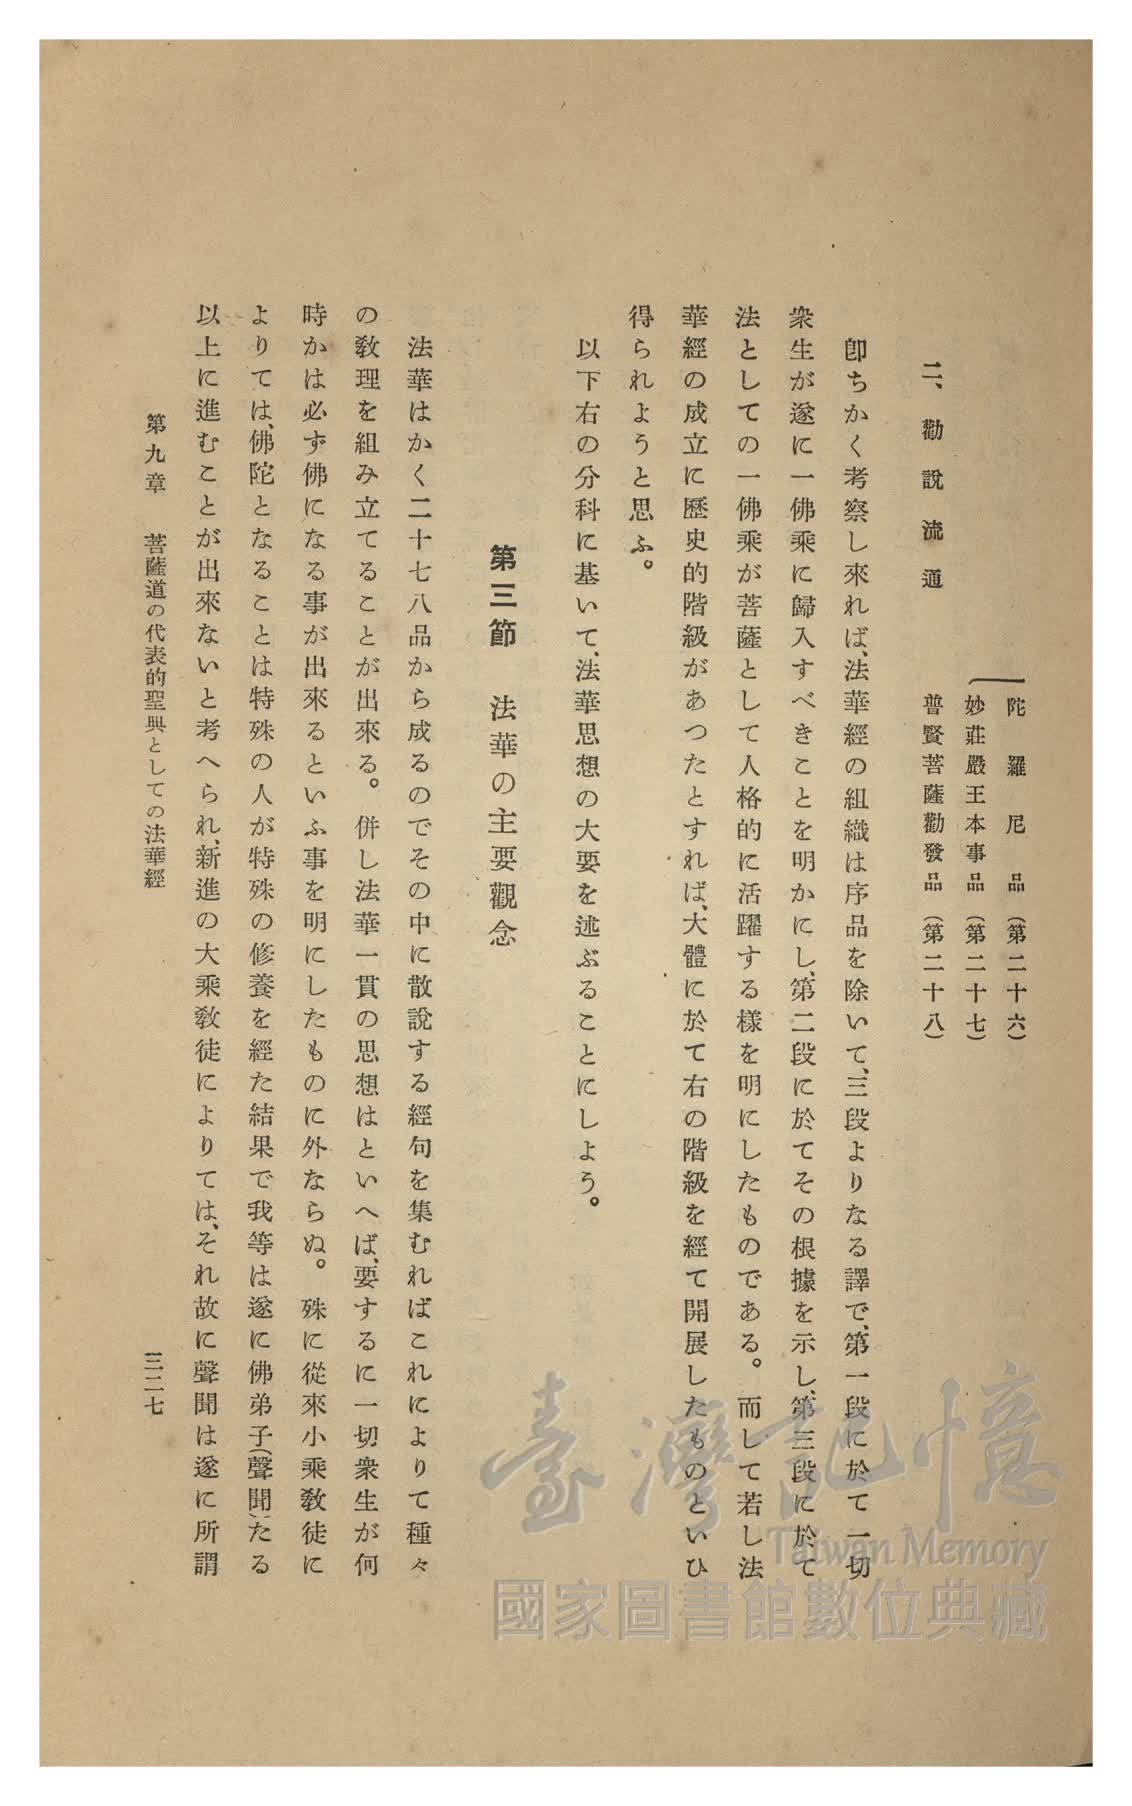 陀羅尼品(第二十六)
妙莊嚴王本事品(第二十七)
二、勸說流通 普賢菩薩勸發品(第二十八)
卽ちかく考察し來れば、法華經の組織は序品を除いて、三段よりなる譯で、第一段に於て一切
衆生が遂に一佛乘に歸入すべきことを明かにし、第二段に於てその根據を示し、第三段に於て
法としての一佛乘が菩薩として人格的に活躍する樣を明にしたものである。而して若し法
華經の成立に歷史的階級があつたとすれば、大體に於て右の階級を經て開展したものといひ
得られようと思ふ。
以下右の分科に基いて、法華思想の大要を述ぶることにしよう。
第三節 法華の主要觀念
法華はかく二十七八品から成るのでその中に散說する經句を集むればこれによりて種々
の敎理を組み立てることが出來る。併し法華一貫の思想はといへば、要するに一切衆生が何
時かは必ず佛になる事が出來るといふ事を明にしたものに外ならぬ。殊に從來小乘敎徒に
よりては、佛陀となることは特殊の人が特殊の修養を經た結果で我等は遂に佛弟子(聲聞)たる
以上に進むことが出來ないと考へられ、新進の大乘敎徒によりては、それ故に聲聞は遂に所謂
第九章 菩薩道の代表的聖典としての法華經 三二七
臺灣記憶
Taiwan Memory
國家圖書館數位典藏